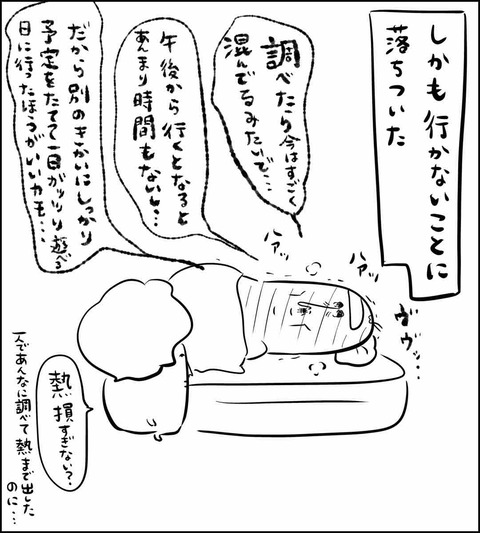 しかも行かないことに
落ちついた
調べたら今はすごく
混んでるみたいで…
午後から行くとなると
あんまり時間もないし…
だから別のきかいにしっかり
予定をたてて一日ガッツリ遊べる
日に行ったほうがいいかも…
ハァッ
ハァッ
ヴヴッ…
熱損すぎない?
一人であんなに調べて熱まで出した
のに…